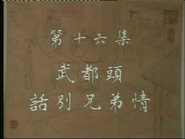 第十六集
武都頭
話別兄弟情